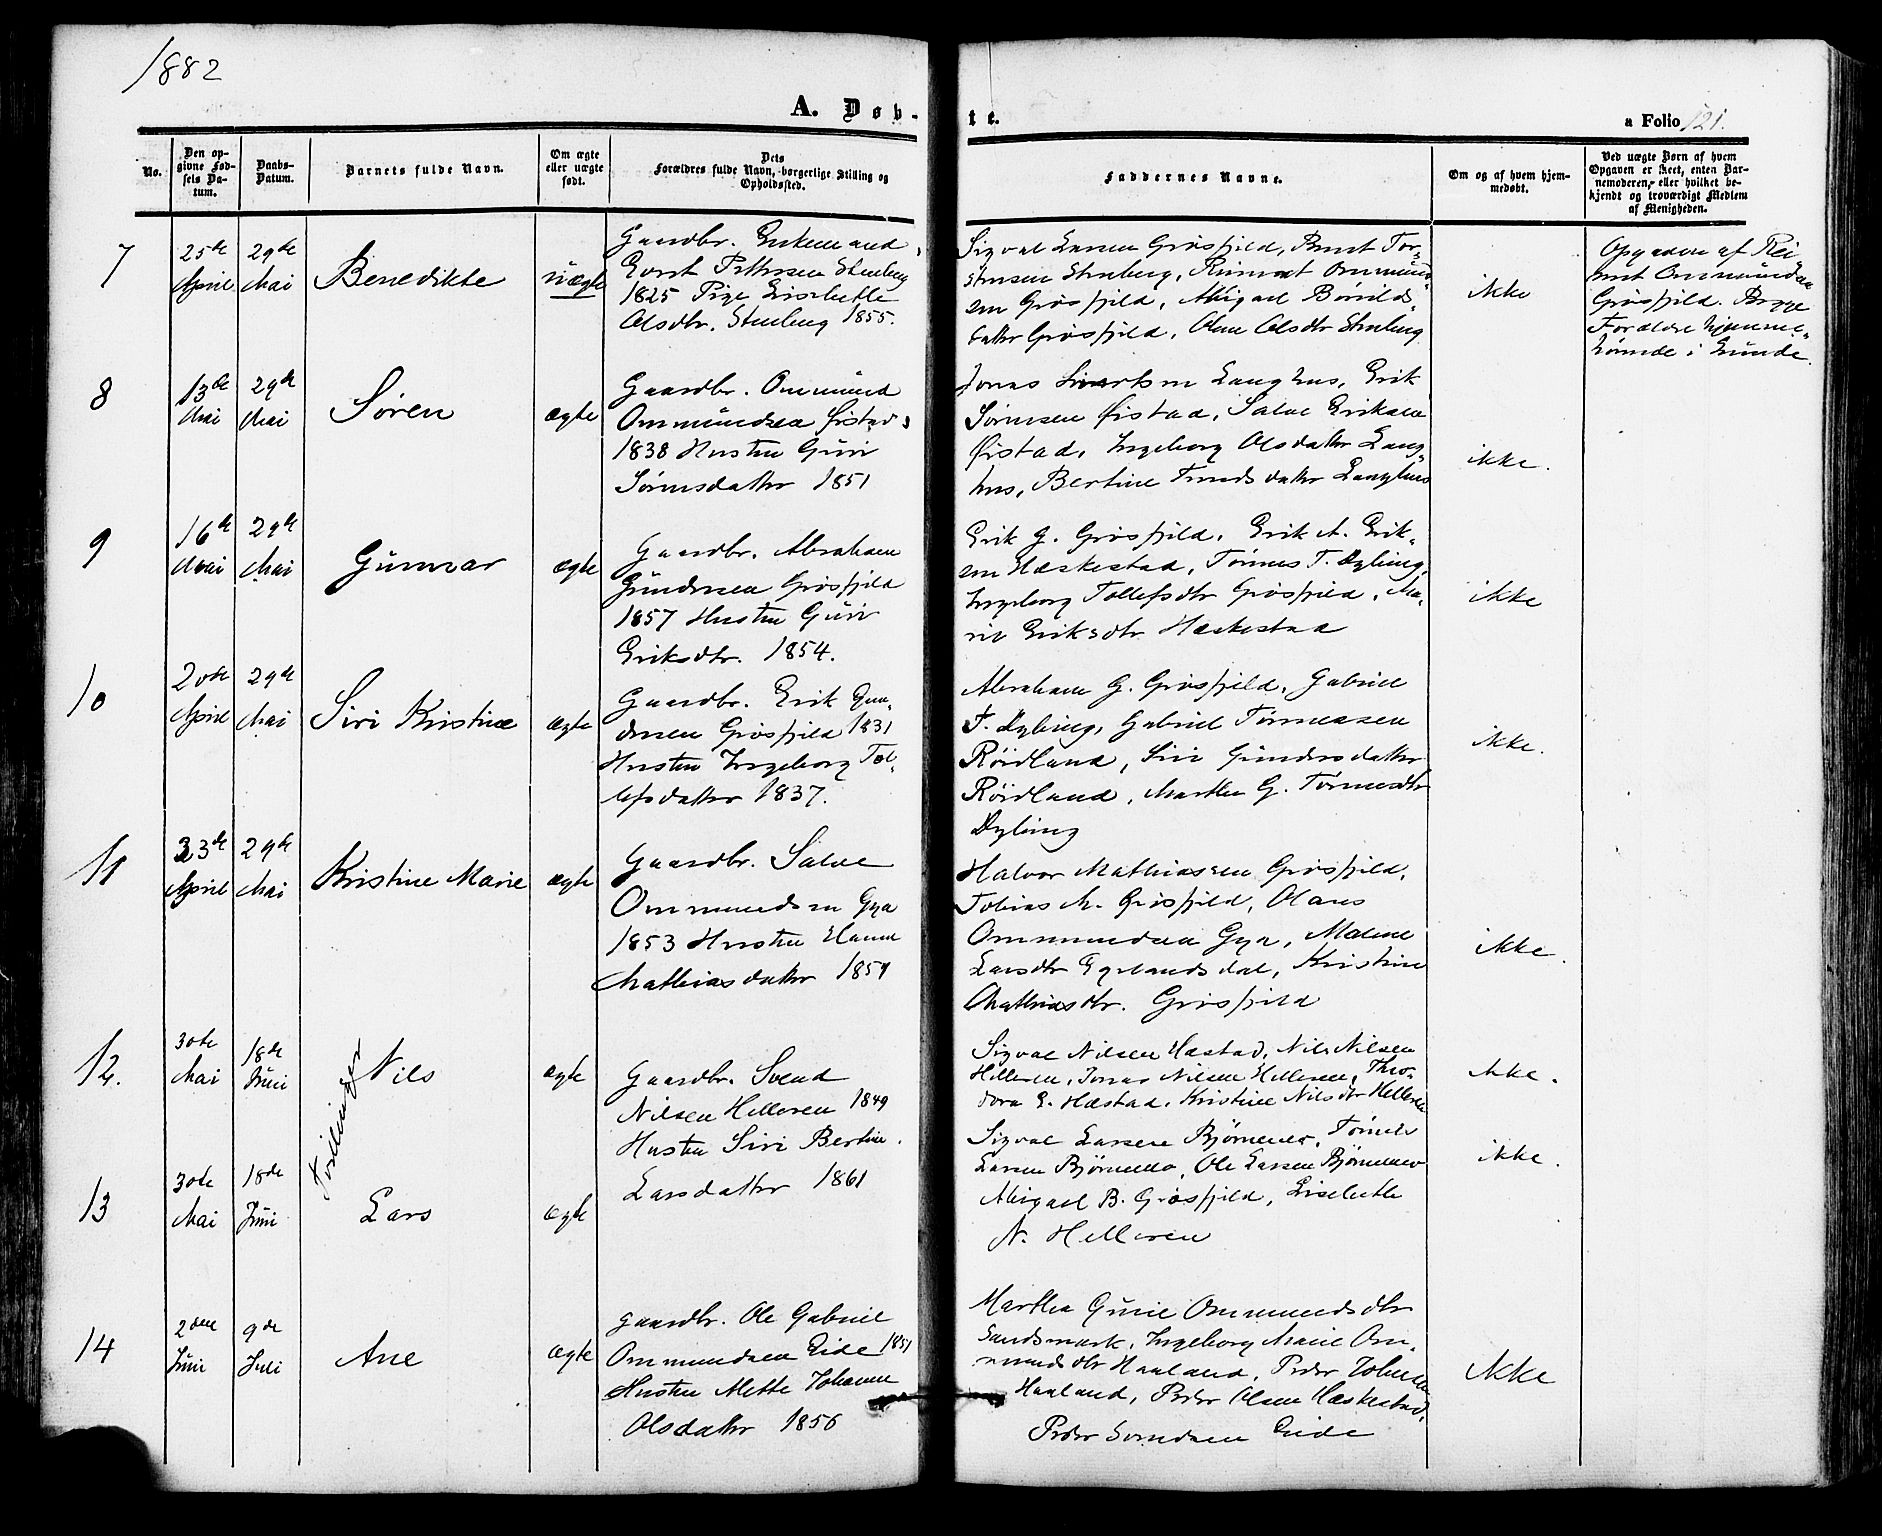 1882
A. Døb-
te.
a Folio 121.
No.
Den op-
givne Fød-
sels Da-
tum.
Daabs-
Datum.
Barnets fulde Navn.
Om ægte
eller uægte
født.
Dets
Forældres fulde Navn, borgerlige Stilling og
Opholdssted.
Faddernes Navne.
Om og af hvem hjem-
medøbt.
Ved uægte Børn af hvem
Opgaven er skeet, enten Bar-
nemoderen, eller hvilket be-
kjendt og troværdigt Medlem
af Menigheden.
7
25de
April
29de
Mai
Benedikte
uægte
Gaardbr. Enkemand
Pettersen Stenberg
1825 Pige Lisebeth
Olsdtr. Stenberg 1855.
Sigval Larsen Grøsfjeld, Bernt Tor-
stensen Stenberg, Reinert Ommund-
sen Grøsfjeld, Abigael Børilds-
datter Grøsfjeld, Olene Olsdtr Stenberg
ikke
Opgaven af Rei
nert Ommundsen
Grøsfjeld. Begge
Forældre hjemme-
hørende i Lunde.
8
13de
Mai
29de
Mai
Søren
ægte
Gaardbr. Ommund
Ommundsen Øistad
1838 Hustru Guri
Sørensdatter 1851
Jonas Langhus, Erik
Sørensen Øistad, Salve Eriksen
Øistad, Ingeborg Olsdatter Lang-
hus, Bertine datter Langhus
ikke.
9
16de
Mai
29de
Mai
Gunnar
ægte
Gaardbr. Abraham
Gundersen Grøsfjeld
1857 Hustru Guri
Eriksdtr. 1854.
Erik G. Grøsfjeld, Erik A. Erik-
sen Hæskestad, Tønnes T. Dybing,
Ingeborg Tollefsdtr Grøsfjeld, Ma-
rit Eriksdtr Hæskestad
ikke
10
20de
April
29de
Mai
Siri Kristine
ægte
Gaardbr. Erik Gun-
dersen Grøsfjeld 1831
Hustru Ingeborg Tol-
lefsdatter 1837.
Abraham G. Grøsfjeld, Gabriel
T. Dybing, Gabriel Tønnessen
Røidland, Siri Gundersdatter
Røidland, Marthe G. Tønnesdtr
Dybing
ikke.
11
23de
April
29de
Mai
Kristine Marie
ægte
Gaardbr. Salve
Ommundsen Gya
1853 Hustru Hanne
Mathiasdatter 1857
Halvor Mathiassen Grøsfjeld,
Tobias M. Grøsfjeld, Olaus
Ommundsen Gya, Malene
Larsdtr Egelandsdal, Kristine
Mathiasdtr. Grøsfjeld
ikke.
12.
30te
Mai
18de
Juni
Tvillinger
Nils
ægte
Gaardbr. Svend
Nilsen Helleren 1849
Hustru Siri Bertine
Larsdatter 1861
Sigval Nilsen Hæstad, Nils Nilsen
Helleren, Jonas Nilsen Helleren, Theo-
dora E. Hæstad, Kristine Nilsdtr Helleren
ikke.
13
30te
Mai
18de
Juni
Lars
ægte
Sigval Larsen Bjørnemo, Tønnes
Larsen Bjørnemo, Ole Larsen Bjørnemo
Abigael B. Grøsfjeld, Lisebeth
N. Helleren
ikke.
14
2den
Juni
9de
Juli
Ane
ægte
gaardbr. Ole Gabriel
Ommundsen Eide 1851
Hustru Mette Johanne
Olsdatter 1856
Marthe Gurie Ommundsdtr
Sandsmark, Ingeborg Marie Om-
mundsdtr Haaland, Peder Johnsen
Haaland, Peder Olsen Hæskestad,
Peder Svendsen Eide
Ikke